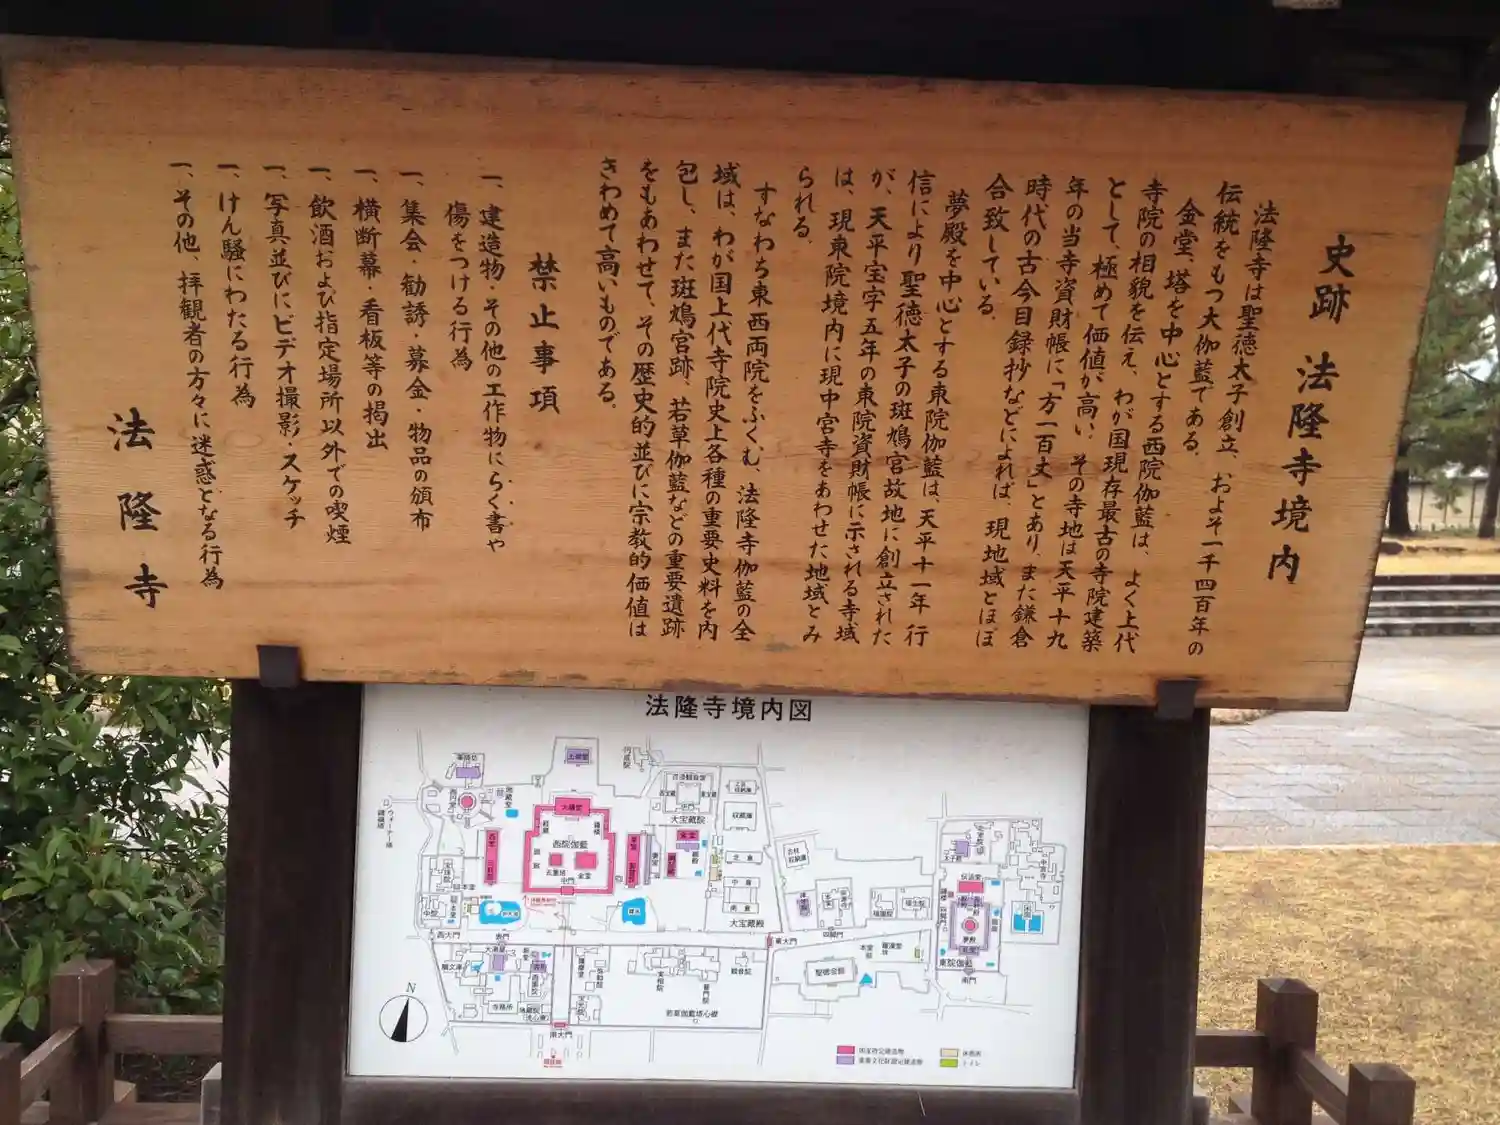 史跡 法隆寺境内
法隆寺は聖徳太子創立、およそ一千四百年の
伝統をもつ大伽藍である。
金堂、塔を中心とする西院伽藍は、よく上代
寺院の相貌を伝え、わが国現存最古の寺院建築
として、極めて価値が高い。その寺地は天平十九
年の当寺資財帳に「方一百丈」とあり、また鎌倉
時代の古今目録抄などによれば、現地域とほぼ
合致している。
夢殿を中心とする東院伽藍は、天平十一年行
信により聖徳太子の斑鳩宮故地に創立された
が、天平宝字五年の東院資財帳に示される寺域
は、現東院境内に現中宮寺をあわせた地域とみ
られる。
すなわち東西両院をふくむ、法隆寺伽藍の全
域は、わが国上代寺院史上各種の重要史料を内
包し、また斑鳩宮跡、若草伽藍などの重要遺跡
をもあわせて、その歴史的並びに宗教的価値は
きわめて高いものである。
禁止事項
一、建造物・その他の工作物にらく書や
傷をつける行為
一、集会・勧誘・募金・物品の頒布
一、横断幕・看板等の掲出
一、飲酒および指定場所以外での喫煙
一、写真並びにビデオ撮影・スケッチ
一、けん騒にわたる行為
一、その他、拝観者の方々に迷惑となる行為
法隆寺
法隆寺境内図
西円堂
地蔵堂
大講堂
西院伽藍
五重塔
金堂
中門
大宝蔵院
収蔵庫
北倉
中倉
南倉
大宝蔵殿
西大門
東大門
四脚門
中宮寺
伝法堂
夢殿
東院伽藍
南門
聖徳会館
観音院
実相院
普門院
若草伽藍塔心礎
寺務所
南大門
N
トイレ